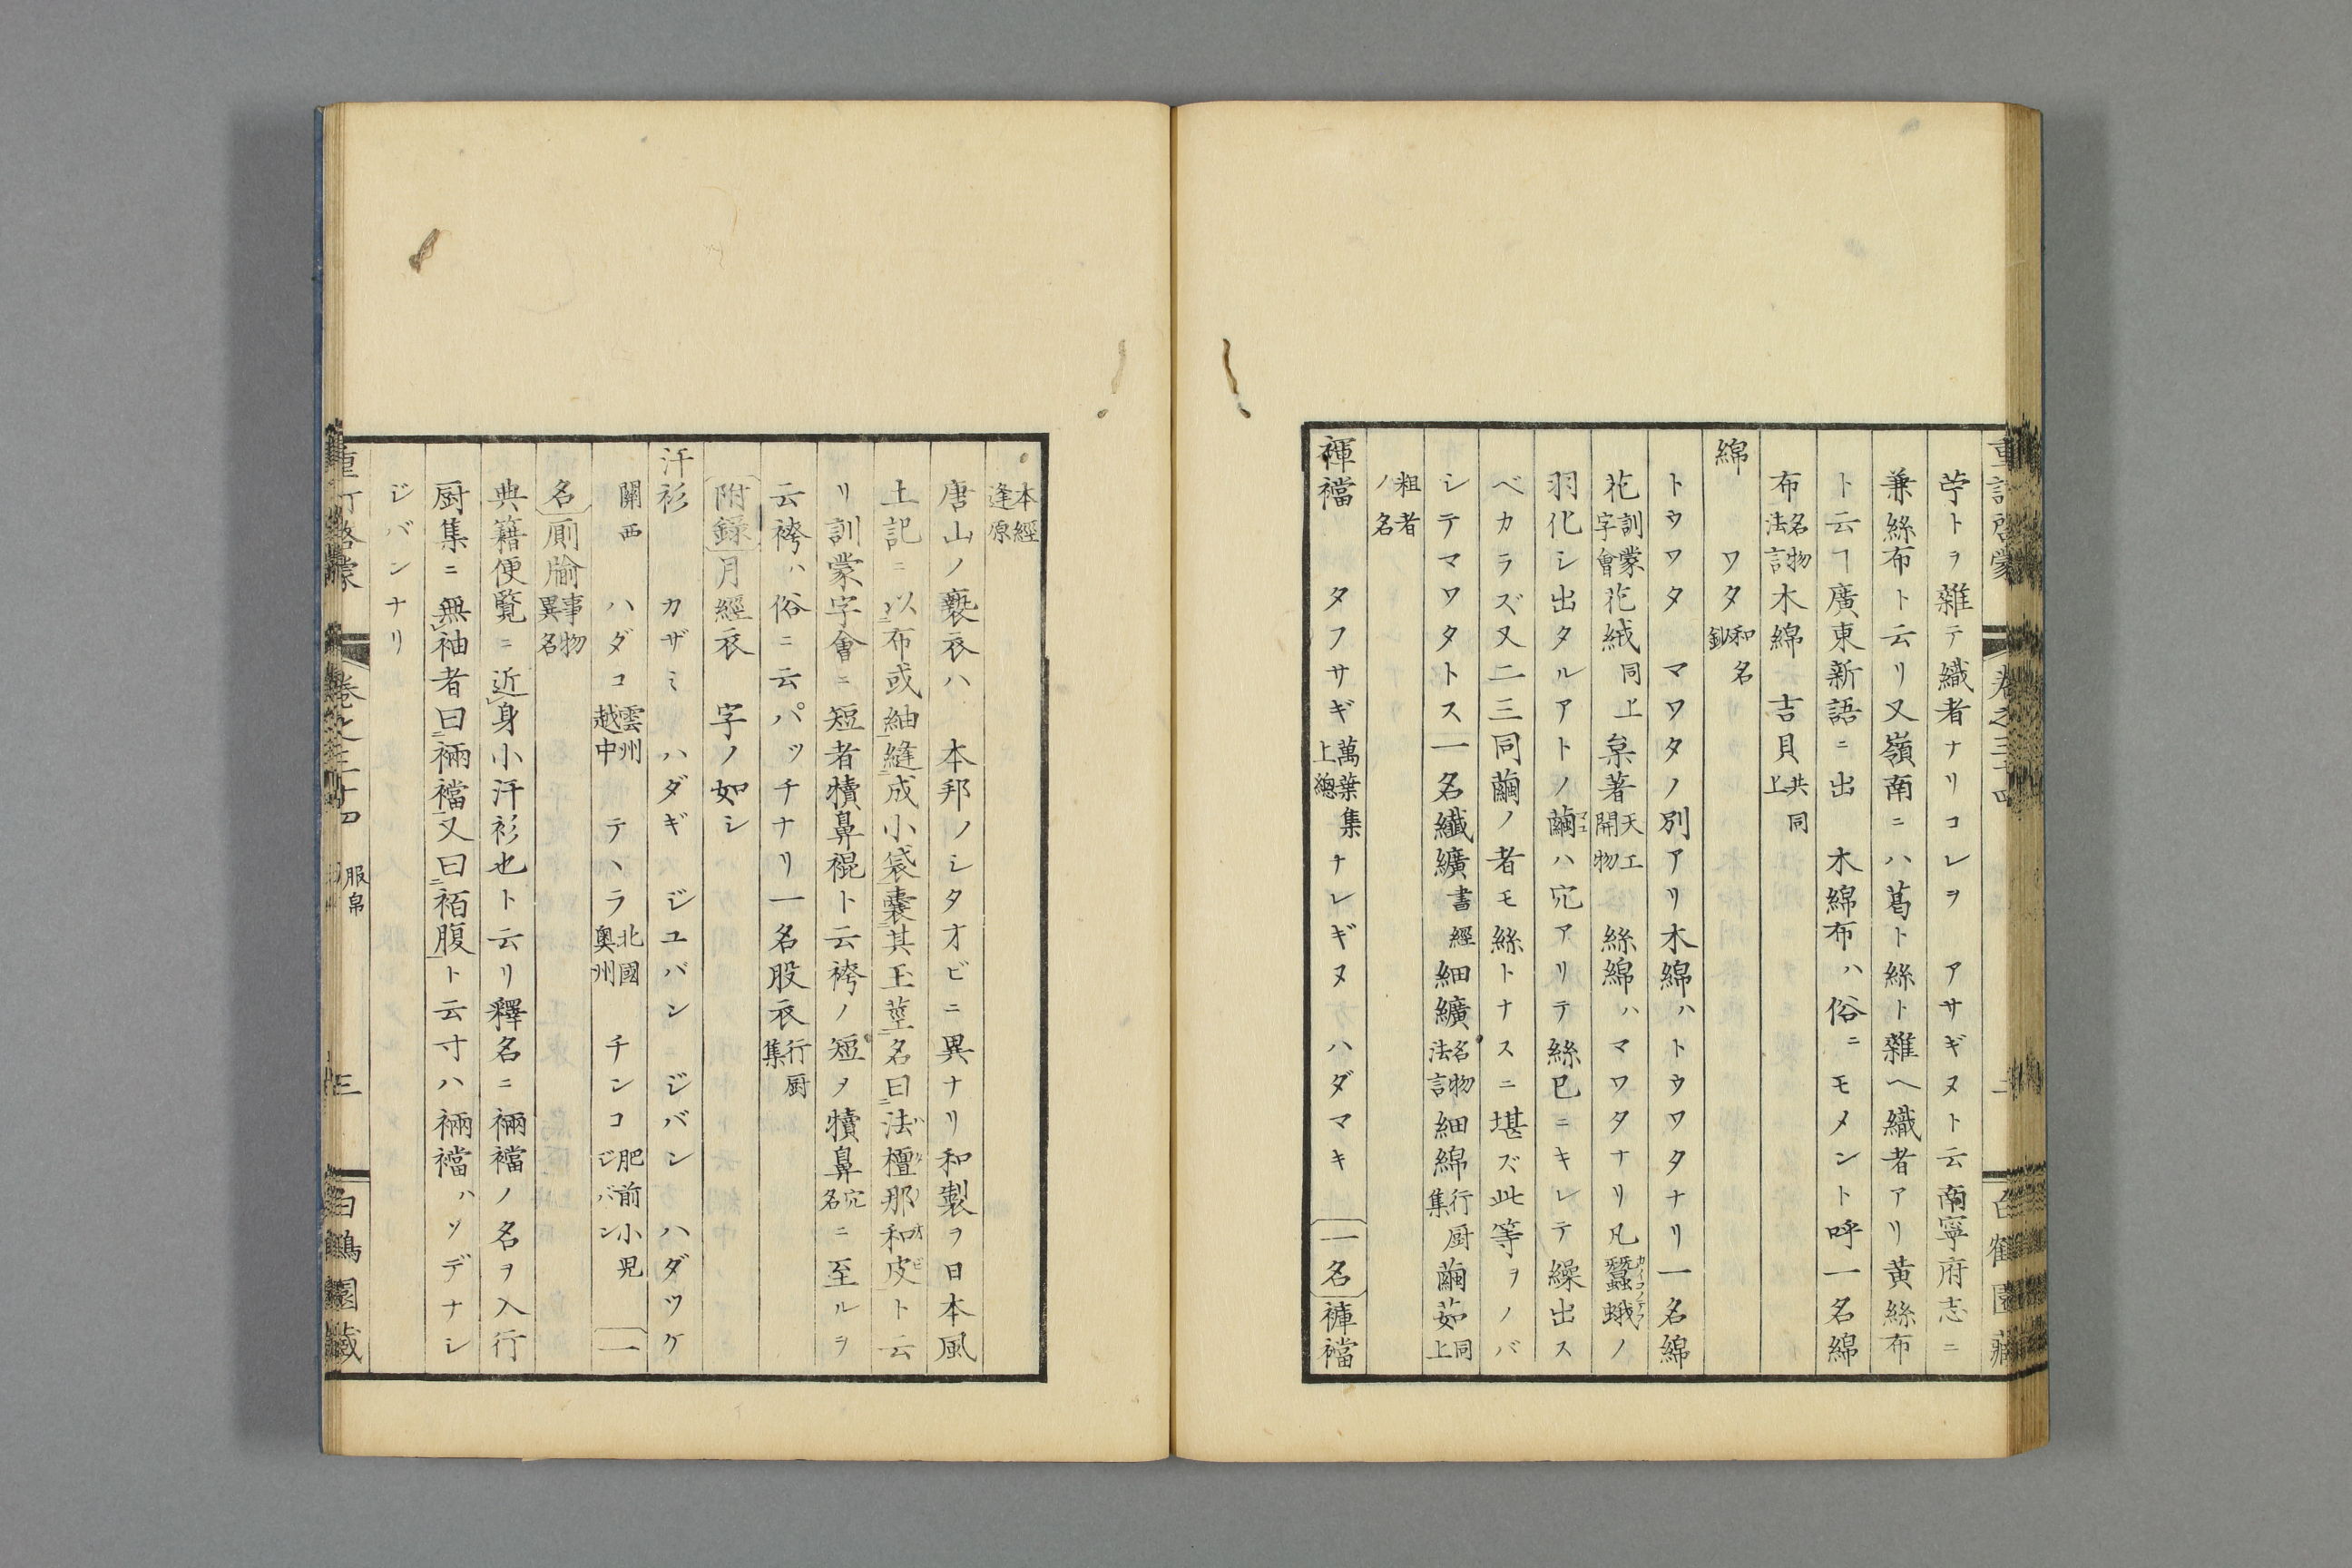 苧トヲ雜テ織者ナリコレヲ アサギヌト云南寧府志ニ
兼絲布ト云リ又嶺南ニハ葛ト絲ト雜ヘ織者アリ黄絲布
ト云ヿ廣東新語ニ出 木綿布ハ俗ニモメント呼一名綿
布名物法言木綿 吉貝共同上
綿 ワタ和名鈔
トウワタ マワタノ別アリ木綿ハトウワタナリ一名綿
花訓蒙字會花絨同上 枲著天工開物 絲綿ハマワタナリ凡蠶蛾ノ
羽化シ出タルアトノ繭ハ穴アリテ絲已ニキレテ繰出ス
ベカラズ又二三同繭ノ者モ絲トナスニ堪ズ此等ヲノバ
シテマワタトス一名纖纊書經細纊名物法言細綿行厨集繭茹同上
粗者ノ名
褌襠 タフサギ萬葉集上總ナレギヌ ハダマキ 一名褲襠
本經逢原
唐山ノ褻衣ハ 本邦ノシタオビニ異ナリ和製ヲ日本風
土記ニ以布或紬縫成小袋囊其玉莖名曰法檀那和皮ト云
リ訓蒙字會ニ短者犢鼻褌ト云袴ノ短ヲ犢鼻穴名ニ至ルヲ
云袴ハ俗ニ云パッチナリ一名股衣行厨集
附録月經衣 字ノ如シ
汗衫 カザミ ハダギ ジユバン ジバン ハダツケ
關西 ハダコ雲州越中 テヽラ北國奥州 チンコ肥前小兒ジバン 一
名厠牏事物異名
典籍便覧ニ近身小汗衫也ト云リ釋名ニ裲襠ノ名ヲ入行
厨集ニ無袖者曰裲襠又曰袹腹ト云寸ハ裲襠ハソデナシ
ジバンナリ
卷之三十四 服帛 三 白鶴園藏